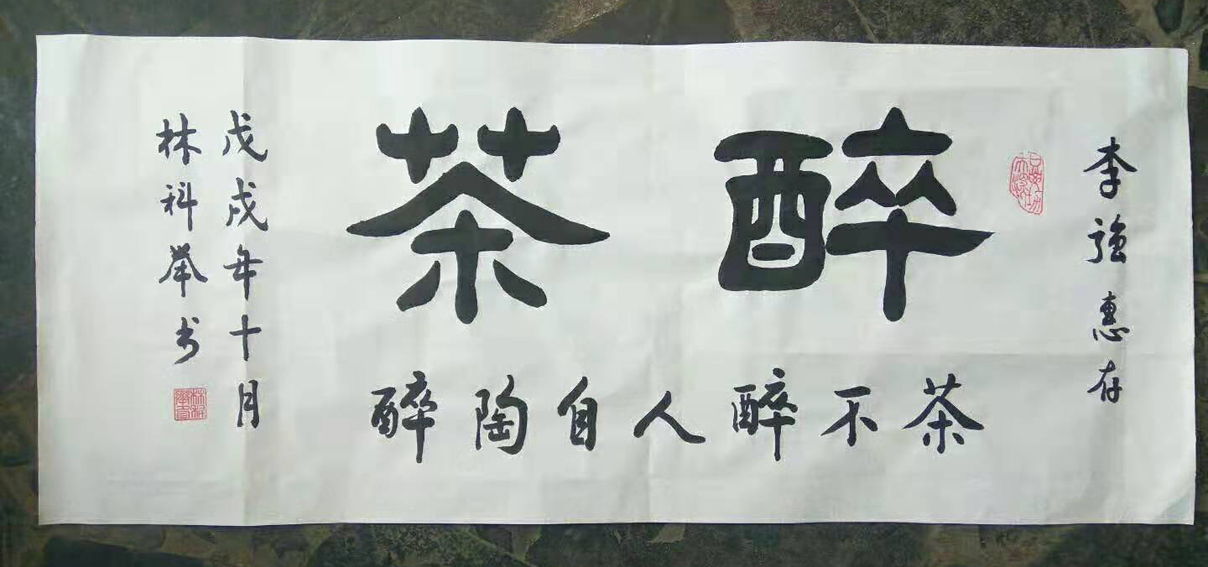 李強惠存
醉茶
茶不醉人自陶醉
戊戌年十月
林科举书